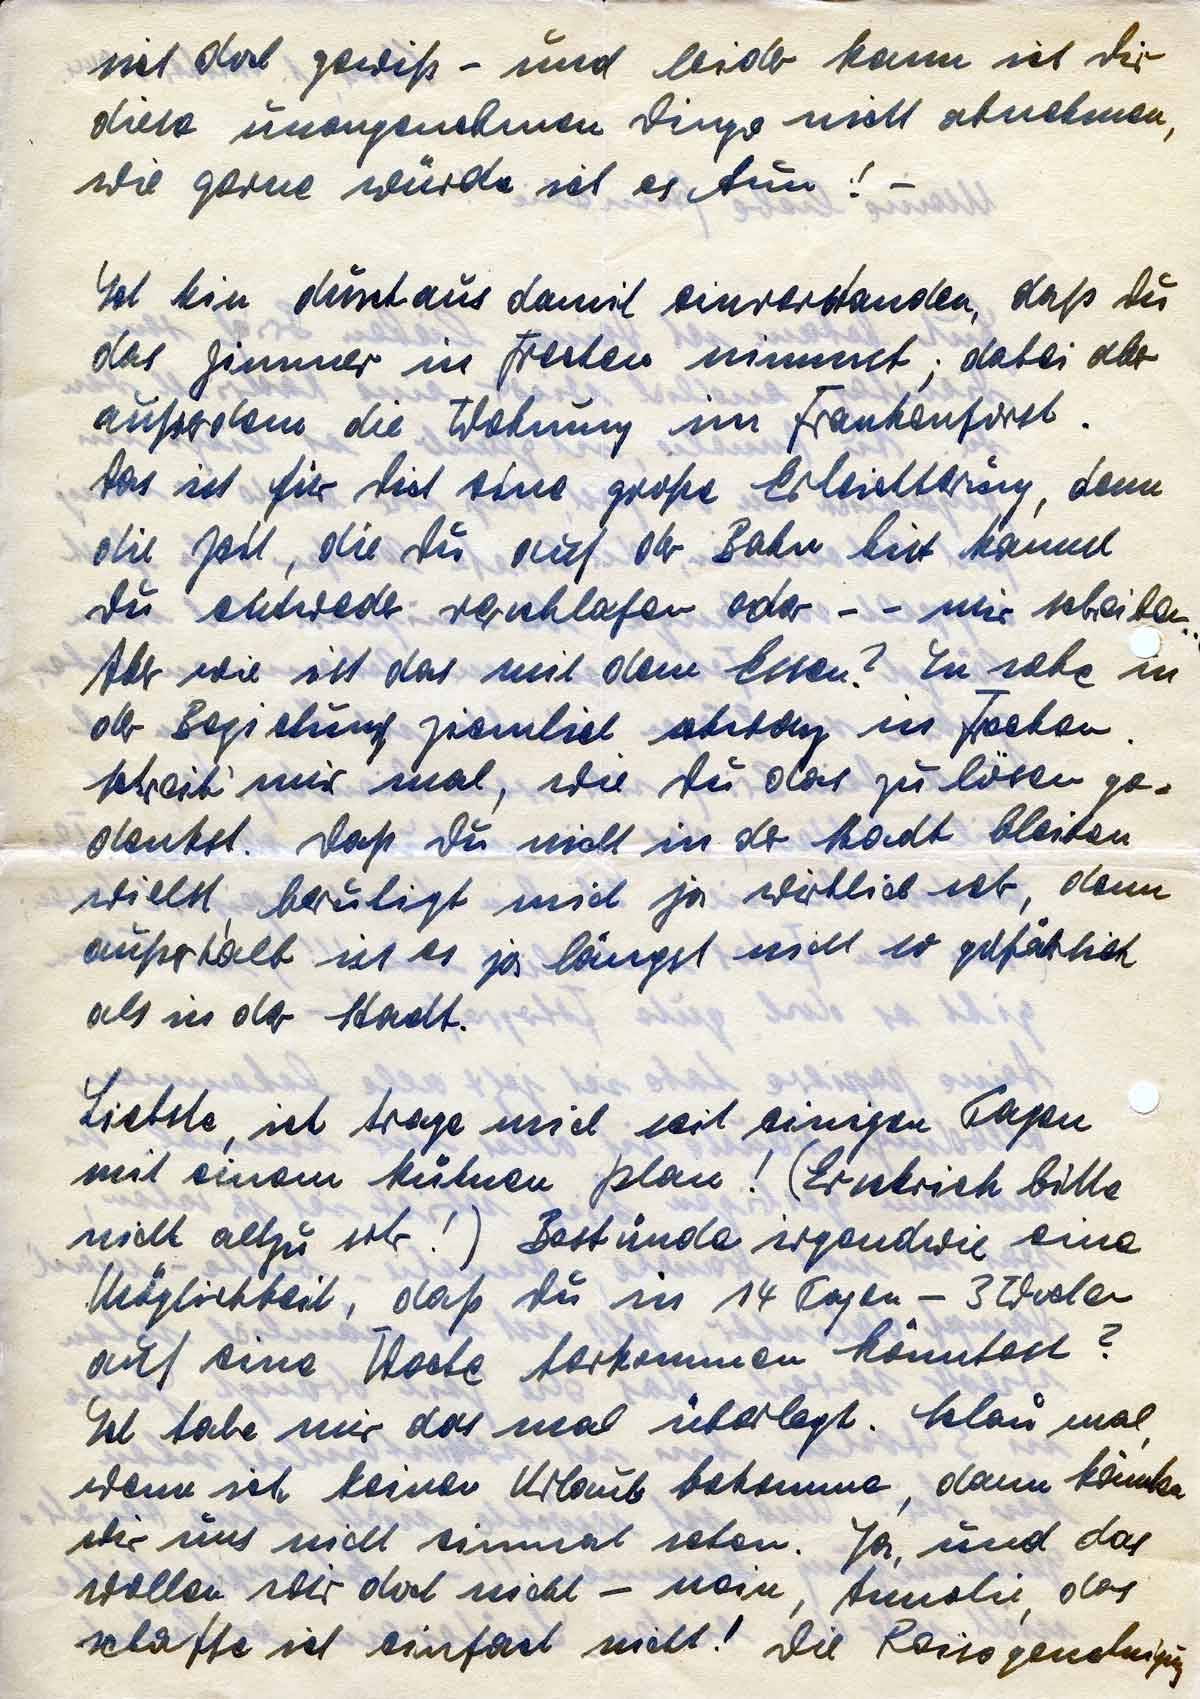 ich doch gewiß – und leider kann ich Dir
diese unangenehmen Dinge nicht abnehmen,
wie gerne würde ich es tun! –
Ich bin durchaus damit einverstanden, daß Du
das Zimmer in Frechen nimmst; dabei aber
außerdem die Wohnung im Frankenforst.
Das ist für Dich eine große Erleichterung, denn
die Zeit, die Du auf der Bahn bist kannst
Du entweder verschlafen oder – – mir schreiben..
Aber wie ist das mit dem Essen? Ich sehe in
der Beziehung ziemlich schwarz in Frechen.
Schreib' mir mal, wie Du das zu lösen ge-
denkst. Daß Du nicht in der Stadt bleiben
willst, beruhigt mich ja wirklich sehr, denn
außerhalb ist es ja längst nicht so gefährlich
als in der Stadt.
Liebste, ich trage mich seit einigen Tagen
mit einem kühnen Plan! (Erschrick bitte
nicht allzu sehr!) Bestünde irgendwie eine
Möglichkeit, daß Du in 14 Tagen – 3 Wochen
auf eine Woche herkommen könntest?
Ich habe mir das mal überlegt. Schau mal,
wenn ich keinen Urlaub bekomme, dann könnten
wir uns nicht einmal sehen. Ja, und das
wollen wir doch nicht – nein, Annelie, das
schaffe ich einfach nicht! Die Reisegenehmigung